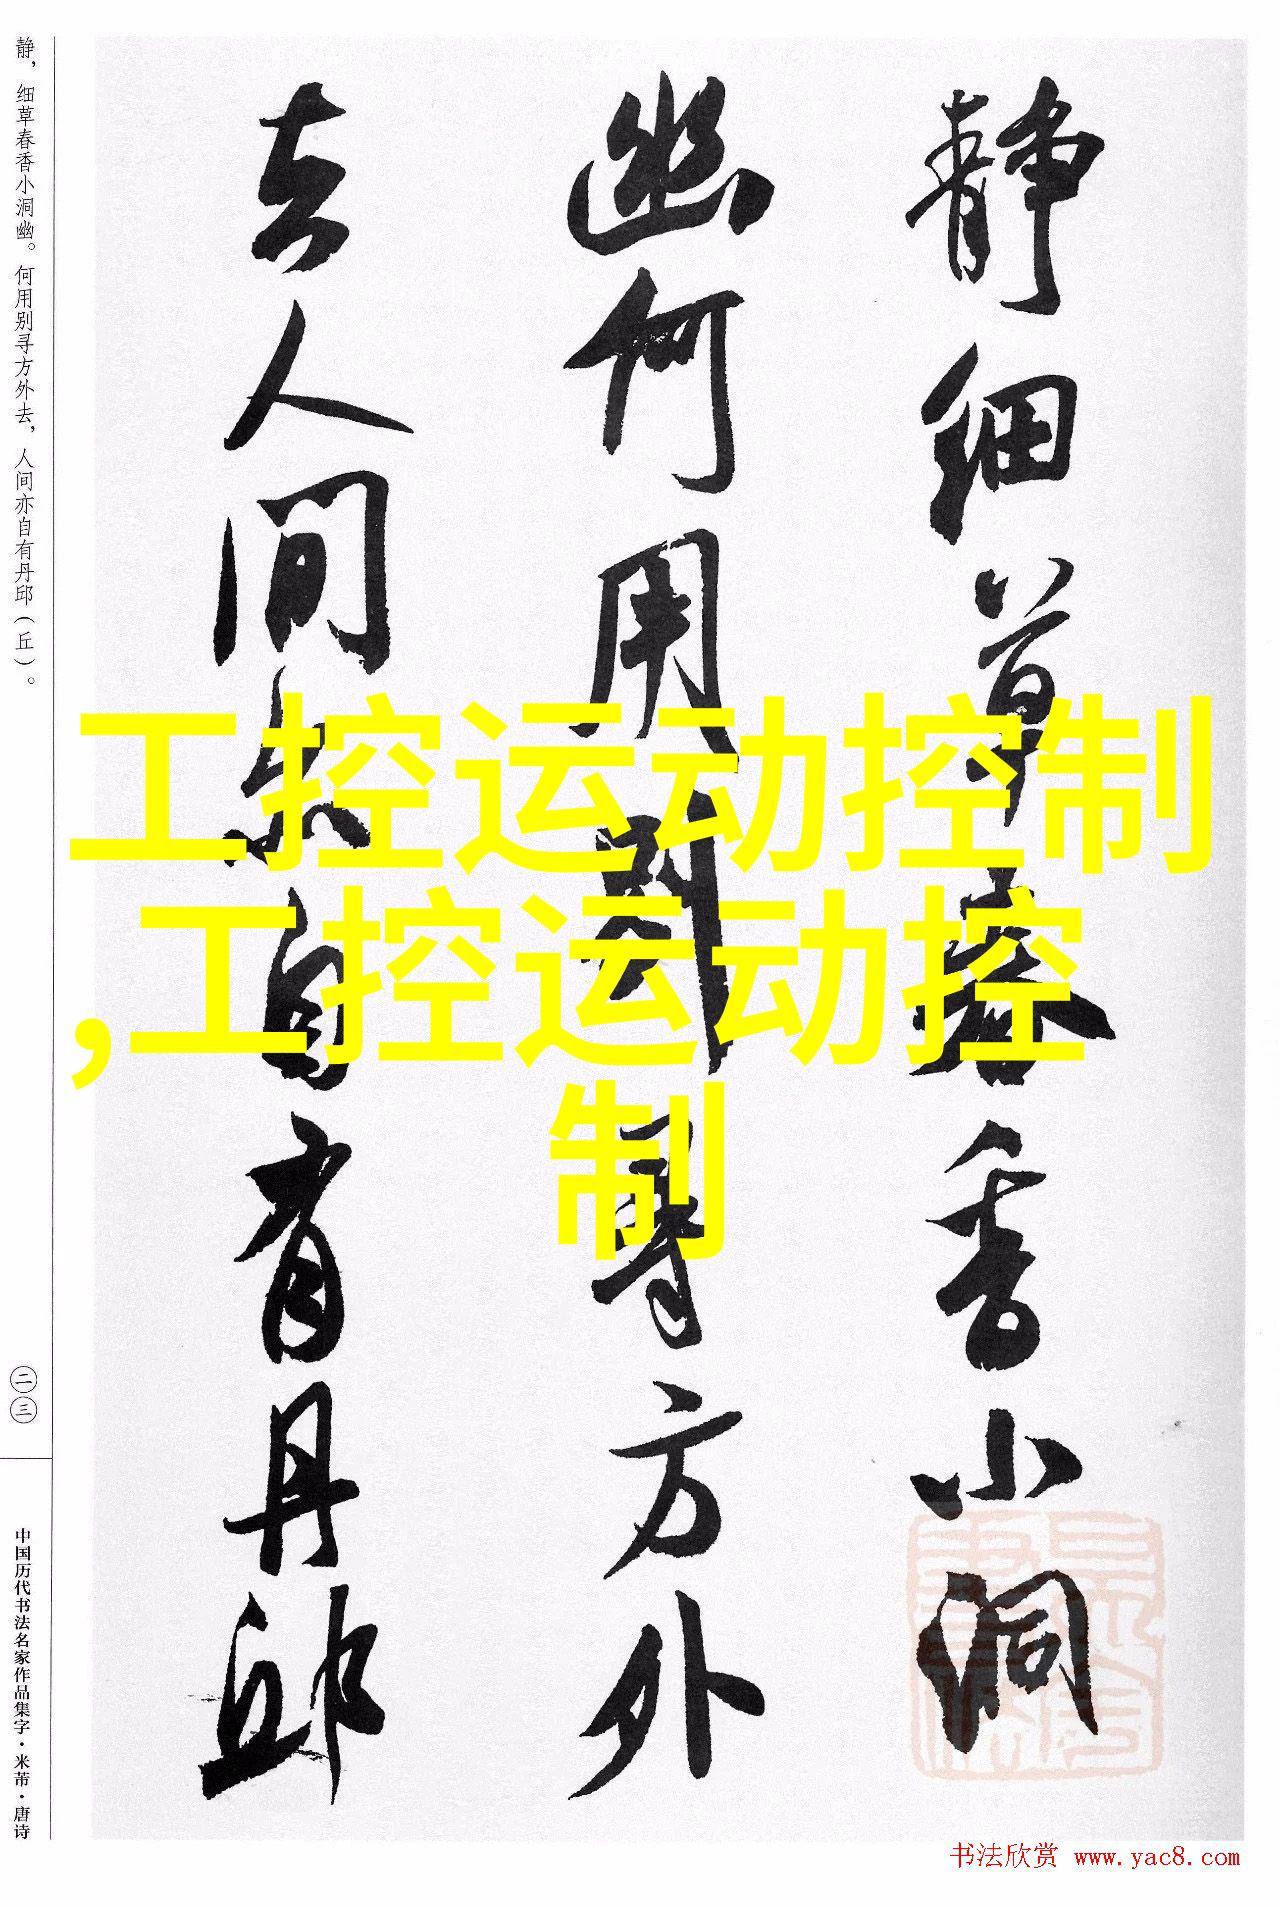 静细草春香小洞
幽何用别寻方外
去人间亦自有丹邱
工控运动控制
,工控运动控
制
静，细草春香小洞幽。何用别寻方外去，人间亦自有丹邱（丘）。
二三
中国历代书法名家作品集字·米芾·唐诗
书法欣赏 www.yac8.com